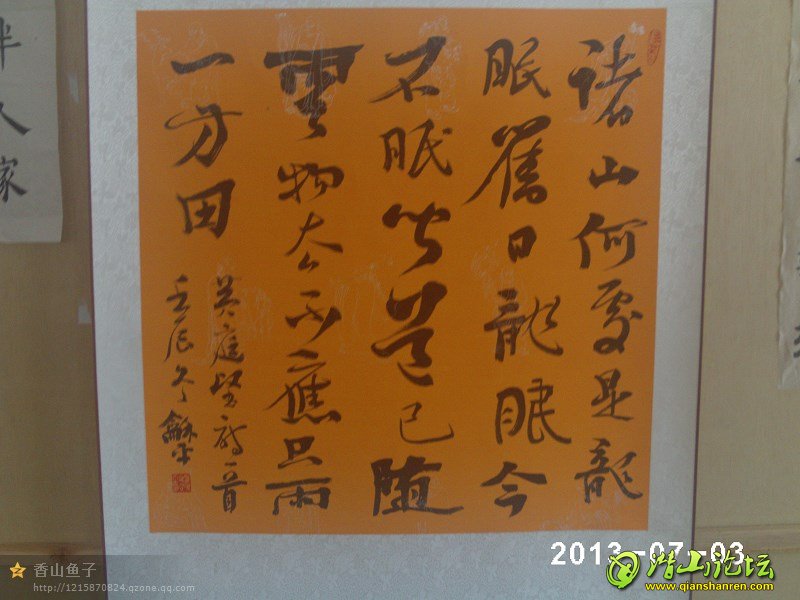 諸山何處是龍
眠舊日龍眠今
不眠聞道已随
雲物去不應只雨
一方田
黄庭堅詩一首
壬辰冬龢平
人家
2013-07-03
香山鱼子
http://1215870824.qzone.qq.com
潜山论坛
www.qianshanren.com